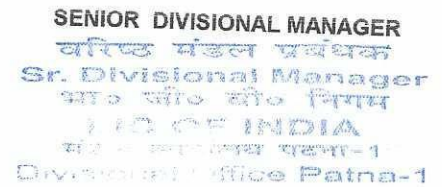 SENIOR DIVISIONAL MANAGER
वरिष्ठ मंडल प्रबंधक
Sr. Divisional Manager
भा० जी० बी० निगम
OF INDIA
पटना-1
Divisional Office Patna-1